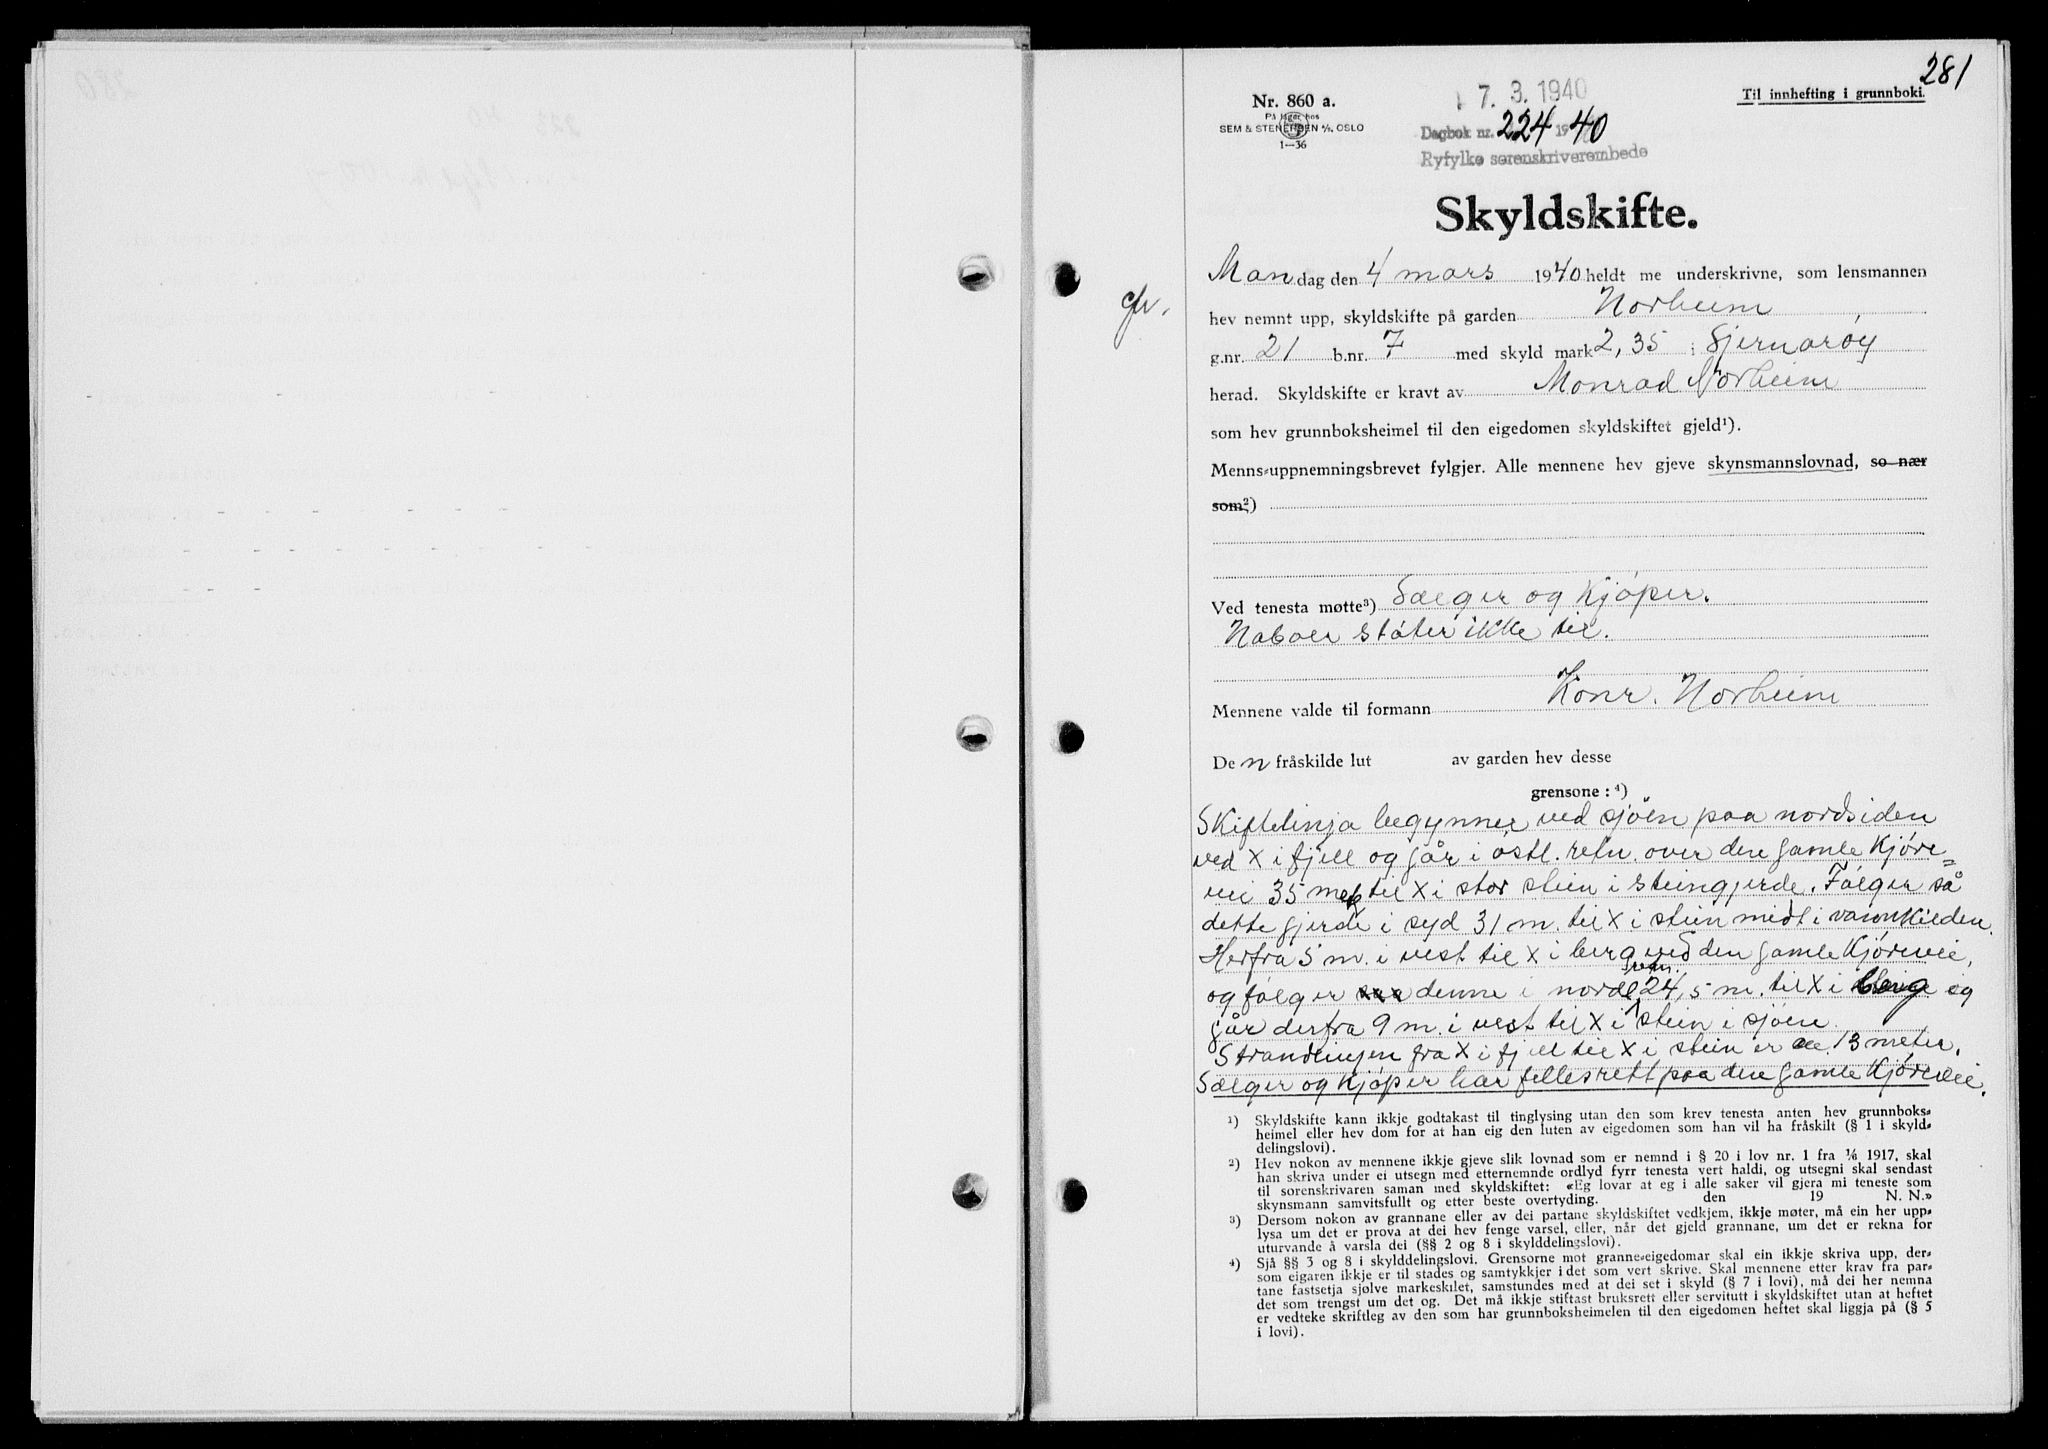 281
Til innhefting i grunnboki.
Nr. 860 a.
På lager hos
SEM & STENERSEN A/S, OSLO
1—36
7. 3. 1940
Dagbok nr. 224 19 40
Ryfylke sorenskriverembede
Skyldskifte.
Mandag den 4 mars 1940 heldt me underskrivne, som lensmannen
hev nemnt upp, skyldskifte på garden Norheim
g.nr. 21 b.nr. 7 med skyld mark 2,35 i Sjernarøy
herad. Skyldskifte er kravt av Monrad Norheim
som hev grunnboksheimel til den eigedomen skyldskiftet gjeld¹).
Menns-uppnemningsbrevet fylgjer. Alle mennene hev gjeve skynsmannslovnad, so nær
som²)
Ved tenesta møtte³) Sælger og Kjøper.
Naboer støter ikke til.
Mennene valde til formann Konr. Norheim
De n fråskilde lut av garden hev desse
grensone: ⁴)
Skiftelinja begynner ved sjøen paa nordsiden
ved X i fjell og går i østl. retn. over den gamle Kjøre=
vei 35 met til X i stor stein i steingjerde. Følger så
dette gjerde i syd 31 m. til X i stein midt i vannkilden.
Herfra 5 m. i vest til X i berg ved den gamle Kjørevei,
og følger denne i nordl. retn. 24,5 m. til X i berg og
går derfra 9 m. i vest til X i stein i sjøen.
Strandlinjen fra X i fjell til X i stein er 13 meter.
Sælger og Kjøper har fellesrett paa den gamle Kjørevei.
¹) Skyldskifte kann ikkje godtakast til tinglysing utan den som krev tenesta anten hev grunnboks-
heimel eller hev dom for at han eig den luten av eigedomen som han vil ha fråskilt (§ 1 i skyld-
delingslovi).
²) Hev nokon av mennene ikkje gjeve slik lovnad som er nemnd i § 20 i lov nr. 1 fra 1/6 1917, skal
han skriva under ei utsegn med etternemnde ordlyd fyrr tenesta vert haldi, og utsegni skal sendast
til sorenskrivaren saman med skyldskiftet: «Eg lovar at eg i alle saker vil gjera mi teneste som
skynsmann samvitsfullt og etter beste overtyding. den 19 N. N.»
³) Dersom nokon av grannane eller av dei partane skyldskiftet vedkjem, ikkje møter, må ein her upp-
lysa um det er prova at dei hev fenge varsel, eller, når det gjeld grannane, um det er rekna for
uturvande å varsla dei (§§ 2 og 8 i skylddelingslovi).
⁴) Sjå §§ 3 og 8 i skylddelingslovi. Grensorne mot granne-eigedomar skal ein ikkje skriva upp, der-
som eigaren ikkje er til stades og samtykkjer i det som vert skrive. Skal mennene etter krav fra par-
tane fastsetja sjølve markeskilet, samstundes med at dei set i skyld (§ 7 i lovi), må dei her nemna
det som trengst um det og. Det må ikkje stiftast bruksrett eller servitutt i skyldskiftet utan at heftet
er vedteke skriftleg av den som har grunnboksheimelen til den eigedomen heftet skal liggja på (§ 5
i lovi).